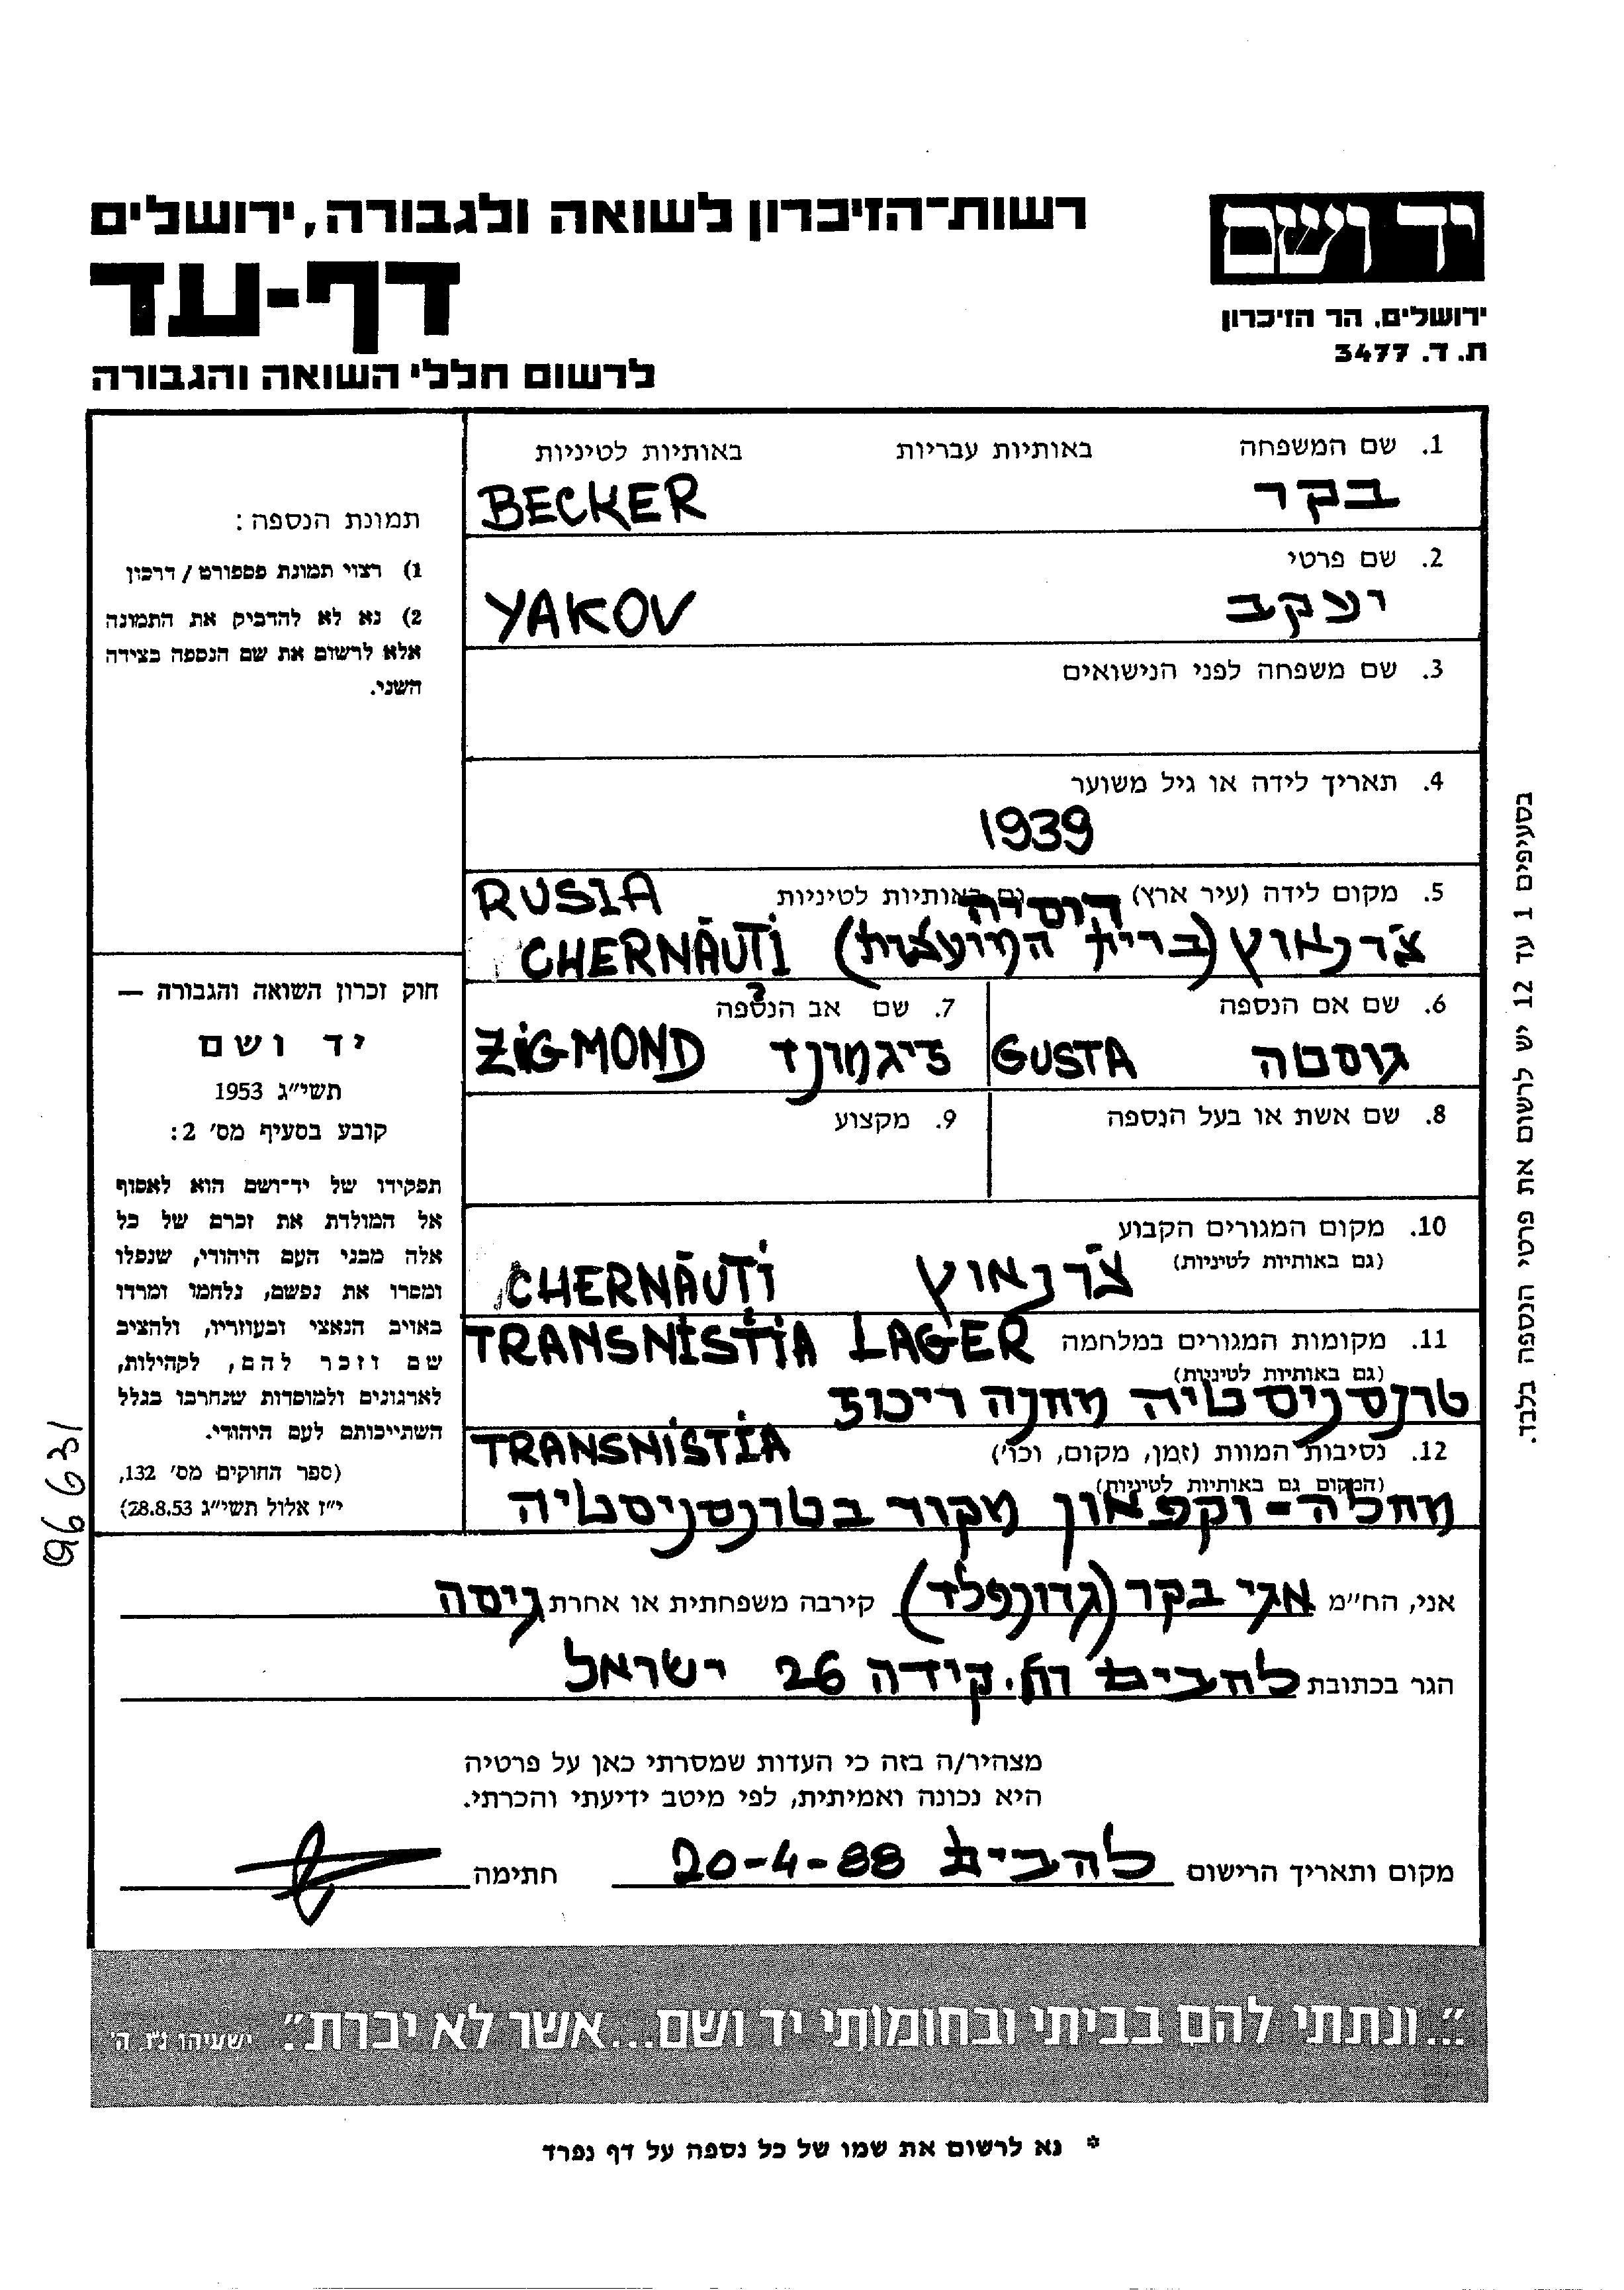 יד ושם
ירושלים, הר הזיכרון
ת. ד. 3477
רשות־הזיכרון לשואה ולגבורה, ירושלים
דף-עד
לרשום חללי השואה והגבורה
1. שם המשפחה באותיות עבריות באותיות לטיניות
בקר BECKER
2. שם פרטי
יעקב YAKOV
3. שם משפחה לפני הנישואים
4. תאריך לידה או גיל משוער
1939
5. מקום לידה (עיר ארץ) גם באותיות לטיניות RUSIA
צ'רנאוץ (ברית המועצות) CHERNĂUTI
6. שם אם הנספה 7. שם אב הנספה
גוסטה GUSTA זיגמונד ZIGMOND
8. שם אשת או בעל הנספה 9. מקצוע
10. מקום המגורים הקבוע
(גם באותיות לטיניות) צ'רנאוץ CHERNĂUTI
11. מקומות המגורים במלחמה TRANSNISTIA LAGER
(גם באותיות לטיניות)
טרנסניסטיה מחנה ריכוז
12. נסיבות המוות (זמן, מקום, וכו') TRANSNISTIA
(המקום גם באותיות לטיניות)
מחלה - וקפאון מקור בטרנסניסטיה
תמונת הנספה:
1) רצוי תמונת פספורט / דרכון
2) נא לא להדביק את התמונה
אלא לרשום את שם הנספה בצידה
השני.
חוק זכרון השואה והגבורה —
יד ושם
תשי״ג 1953
קובע בסעיף מס׳ 2:
תפקידו של יד־ושם הוא לאסוף
אל המולדת את זכרם של כל
אלה מבני העם היהודי, שנפלו
ומסרו את נפשם, נלחמו ומרדו
באויב הנאצי ובעוזריו, ולהציב
שם וזכר להם, לקהילות,
לארגונים ולמוסדות שנחרבו בגלל
השתייכותם לעם היהודי.
(ספר החוקים מס׳ 132,
י״ז אלול תשי״ג 28.8.53)
אני, הח״מ אגי בקר (גרונפלד) קירבה משפחתית או אחרת גיסה
הגר בכתובת להבים רח. קידה 26 ישראל
מצהיר/ה בזה כי העדות שמסרתי כאן על פרטיה
היא נכונה ואמיתית, לפי מיטב ידיעתי והכרתי.
מקום ותאריך הרישום להבים 20-4-88 חתימה
"...ונתתי להם בביתי ובחומותי יד ושם...אשר לא יכרת." ישעיהו נ״ו, ה׳
* נא לרשום את שמו של כל נספה על דף נפרד
בסעיפים 1 עד 12 יש לרשום את פרטי הנספה בלבד.